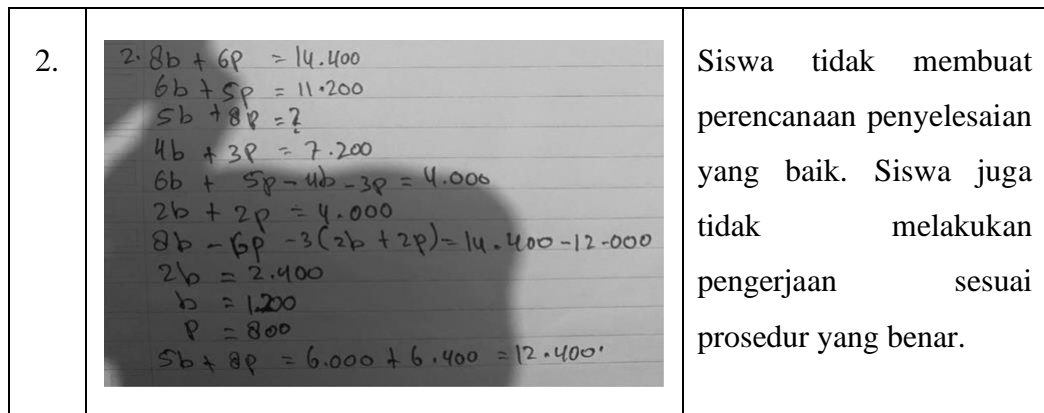 2.
2. 8b + 6p = 14.400
6b + 5p = 11.200
5b + 8p = ?
4b + 3p = 7.200
6b + 5p - 4b - 3p = 4.000
2b + 2p = 4.000
8b - 6p - 3(2b + 2p) = 14.400 - 12.000
2b = 2.400
b = 1.200
p = 800
5b + 8p = 6.000 + 6.400 = 12.400.
Siswa tidak membuat
perencanaan penyelesaian
yang baik. Siswa juga
tidak melakukan
pengerjaan sesuai
prosedur yang benar.